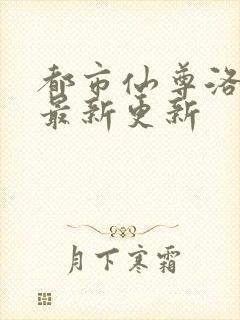 都市仙尊洛
最新更新
月下寒霜